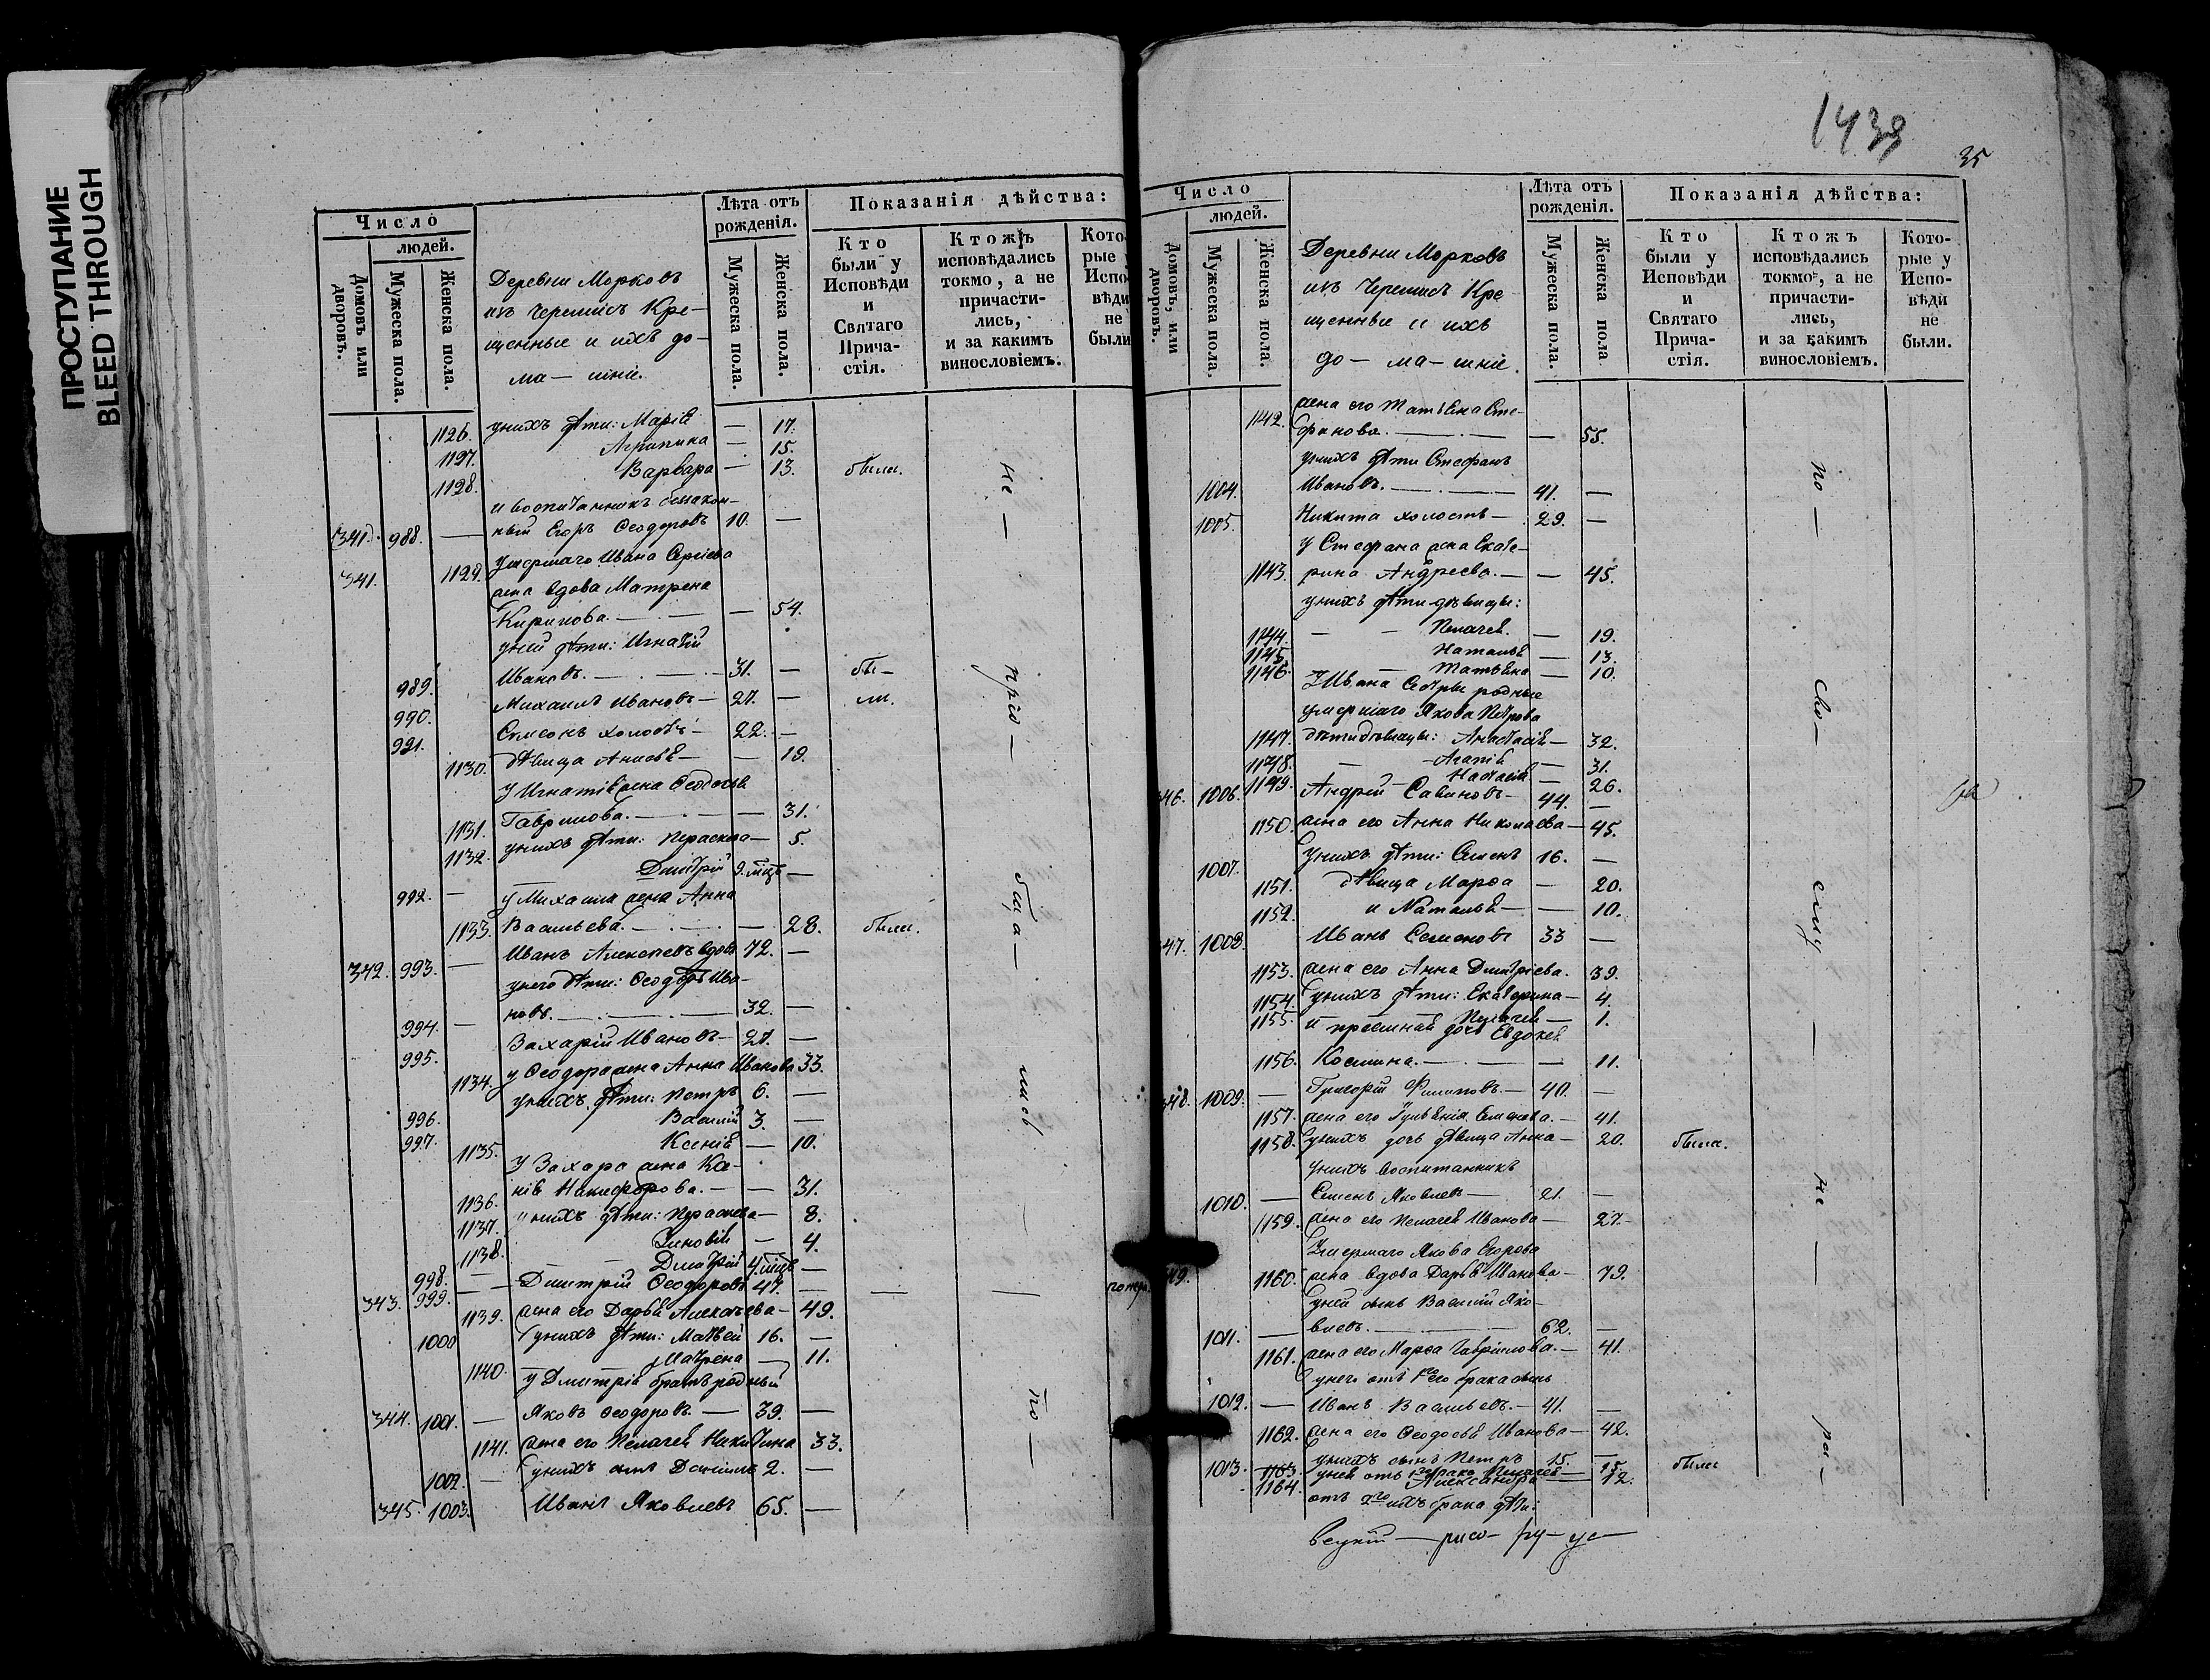 ПРОСТУПАНИЕ
BLEED THROUGH
Число
людей.
Домовъ или дворовъ.
Мужеска пола.
Женска пола.
Деревни Морковъ
изъ Черемисъ Кре-
щенные и ихъ до-
ма- шніе.
Лѣта отъ рожденія.
Мужеска пола.
Женска пола.
Показанія дѣйства:
Кто были у Исповѣди и Святаго Прича-стія.
Ктожъ исповѣдались токмо, а не причасти-лись, и за какимъ винословіемъ.
Кото- рые у Испо- вѣди не были
1126. у нихъ дѣти: Марія — 17.
1127. Агрипина — 15.
1128. Варвара — 13. были.
и воспитанникъ беззакон-
(341). 988. — ный Егоръ Ѳеодоровъ 10. —
341. 1129. Умершаго Ивана Сергіева
жена вдова Матрена
Кирилова. — — 54.
у ней дѣти: Игнатій
989. Ивановъ. — 31. — бы-
990. Михаилъ Ивановъ — 27. — ли.
991. Симеонъ холостъ — 22. —
1130. дѣвица Анисья — — 19.
У Игнатія жена Ѳеодосья
1131. Гаврилова. — — 31.
1132. у нихъ дѣти: Параскева — 5.
992. — Димитрій 9. мѣсц. —
у Михаила жена Анна
1133. Васильева. — — 28. были.
342. 993. — Иванъ Алексѣевъ вдовъ 72. —
у него дѣти: Ѳеодоръ Ива-
994. — новъ. — 32. —
995. Захарій Ивановъ — 27. —
1134. у Ѳеодора жена Анна Иванова 33.
996. у нихъ дѣти: Петръ 6. —
997. Василій 3. —
1135. Ксенія — 10.
У Захара жена Ксе-
1136. нія Никифорова. — — 31.
1137. у нихъ дѣти: Параскева — 8.
1138. Зиновія — 4.
998. — Димитрій 4. мѣсц. —
343. 999. — Димитрій Ѳеодоровъ 47. —
1139. жена его Дарья Алексѣева — 49.
1000 у нихъ дѣти: Матвей 16. —
1140. Матрена — 11.
у Дмитрія братъ родный
344. 1001. — Яковъ Ѳеодоровъ. — 39. —
1141. жена его Пелагея Никитина 33.
1002. — у нихъ сынъ Даніилъ 2. —
345. 1003. Иванъ Яковлевъ 65. —
не — прі — ча — лись — по —
1433
35
Число
людей.
Домовъ, или дворовъ.
Мужеска пола.
Женска пола.
Деревни Морковъ
изъ Черемисъ Кре-
щенные и ихъ
до- ма- шніе.
Лѣта отъ рожденія.
Мужеска пола.
Женска пола
Показанія дѣйства:
Кто были у Исповѣди и Святаго Прича-стія.
Ктожъ исповѣдались токмо, а не причасти-лись, и за какимъ винословіемъ.
Кото- рые у Испо- вѣди не были.
1142. жена его Татьяна Сте-
фанова. — — 55.
у нихъ дѣти Стефанъ
1004. Ивановъ. — 41. —
1005. Никита холостъ — 29. —
У Стефана жена Екате-
1143. рина Андреева. — — 45.
у нихъ дѣти дѣвицы:
1144. — — Пелагея. — 19.
1145. Наталья — 13.
1146. — Татьяна — 10.
У Ивана сестры родныя
умершаго Якова Петрова
1147. дѣти дѣвицы: Анастасія — 32.
1148. — Агапія — 31.
1149. — Настасія — 26.
346. 1006. Андрей Савиновъ — 44. —
1150. жена его Анна Николаева — 45.
1007. У нихъ дѣти: Семенъ 16. —
1151. дѣвица Марѳа — 20.
1152. и Наталья — — 10.
347. 1008. Иванъ Семеновъ 33 —
1153. жена его Анна Димитріева. 39.
1154. у нихъ дѣти: Екатерина — 4.
1155. Пелагея — 1.
и пріемная дочь Евдокея
1156. Космина. — — 11.
348. 1009. — Григорій Филиповъ — 40. —
1157. жена его Гулѣнія Семенова. — 41.
1158. у нихъ дочь дѣвица Анна — 20. была.
У нихъ воспитанникъ
1010. — Семенъ Яковлевъ — 21. —
1159. жена его Пелагея Иванова — 27.
Умершаго Якова Егорова
349. 1160. жена вдова Дарья Иванова — 79.
у ней сынъ Василій Яко-
1011. — влевъ. — 62. —
1161. жена его Марѳа Гаврилова. — 41.
у него отъ 1го его брака сынъ
1012. — Иванъ Васильевъ. — 41. —
1162. жена его Ѳеодосья Иванова — 42.
1013. — у нихъ сынъ Петръ 15. — были
1163. у нея отъ 1го брака Пелагея — 15.
1164. Александра — 12.
отъ 2го ихъ брака дѣти:
по — сво — ему — не — ра —